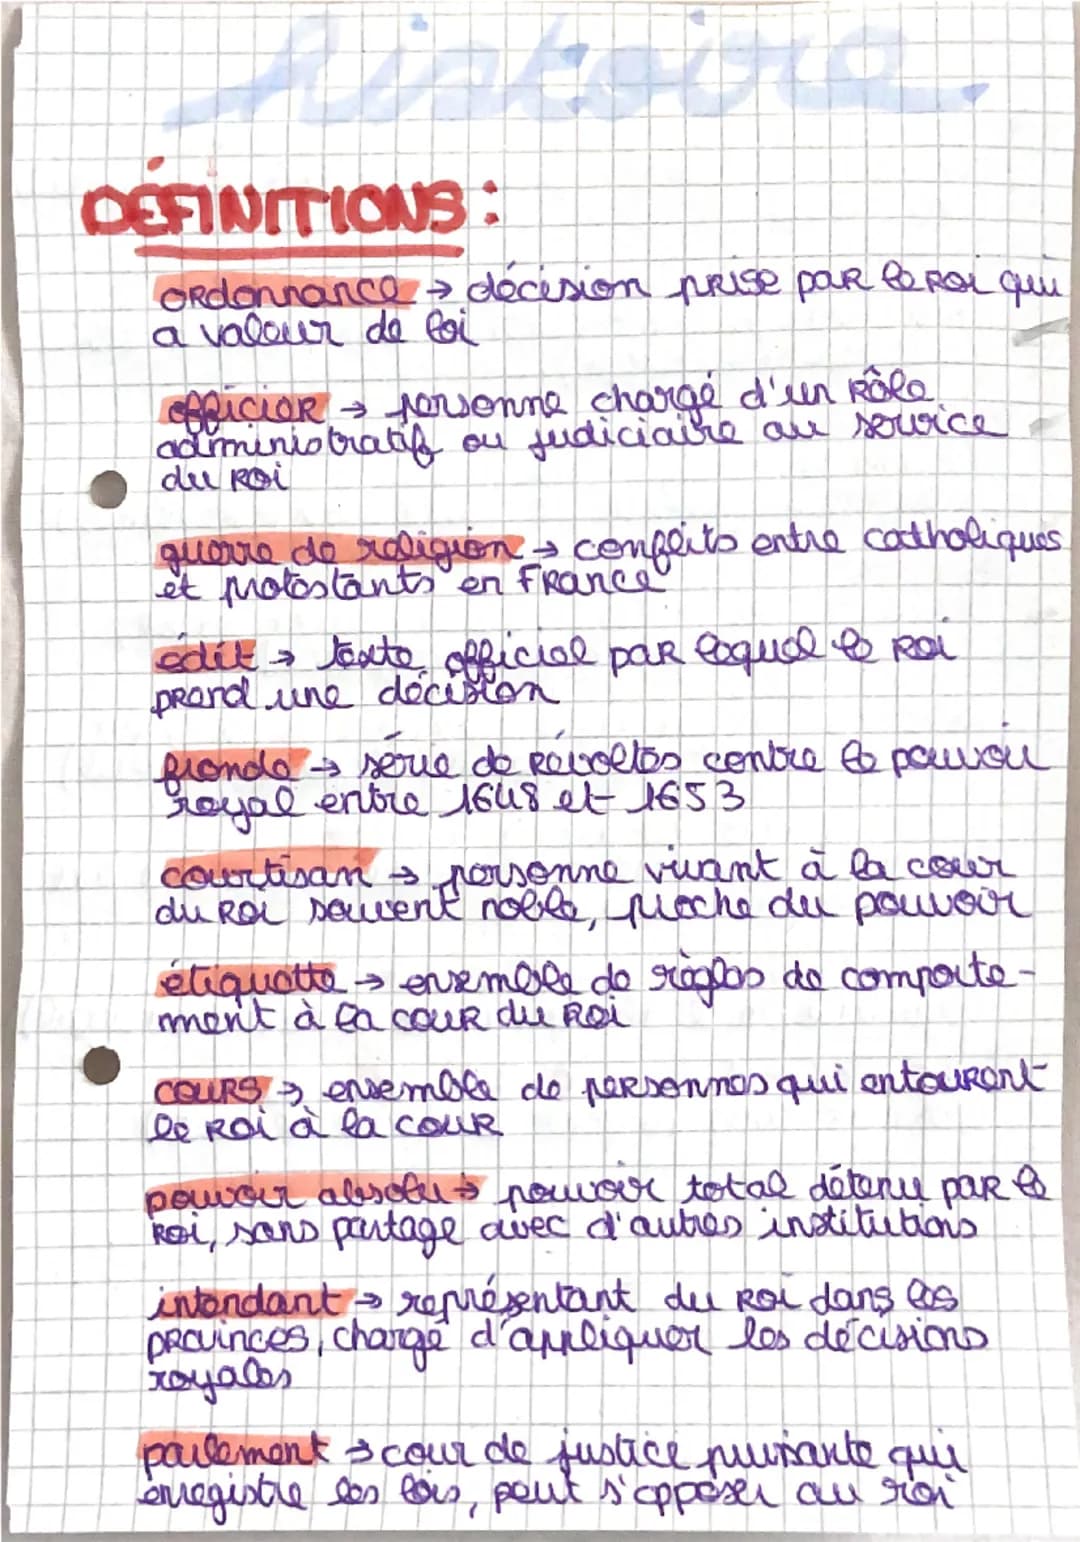 histoire.
DÉFINITIONS :
ordonnance → décision prise par le roi qui
a valeur de loi
officier → personne chargé d'un rôle
administratif ou judiciaire au service
du roi
guerre de religion → conflits entre catholiques
et protestants en France
édit → texte officiel par lequel le roi
prend une décision
fronde → série de révoltes contre le pouvoir
royal entre 1648 et 1653
courtisan → personne vivant à la cour
du roi souvent noble, proche du pouvoir
étiquette → ensemble de règles de comporte-
ment à la cour du roi
cours → ensemble de personnes qui entourent
le roi à la cour
pouvoir absolu → pouvoir total détenu par le
roi, sans partage avec d'autres institutions
intendant → représentant du roi dans les
provinces, chargé d'appliquer les décisions
royales
parlement → cour de justice puissante qui
enregistre les lois, peut s'opposer au roi